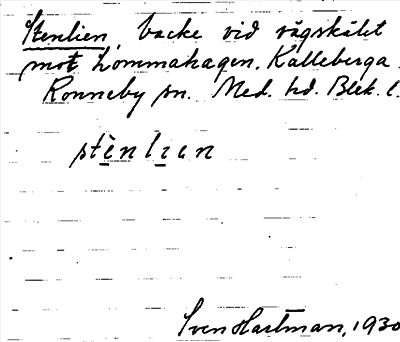 Stenlien, backe vid vägskälet
mot Lommahagen. Kalleberga.
Ronneby sn. Med. hd. Blek. l.
stènlıen
Sven Hartman, 1930